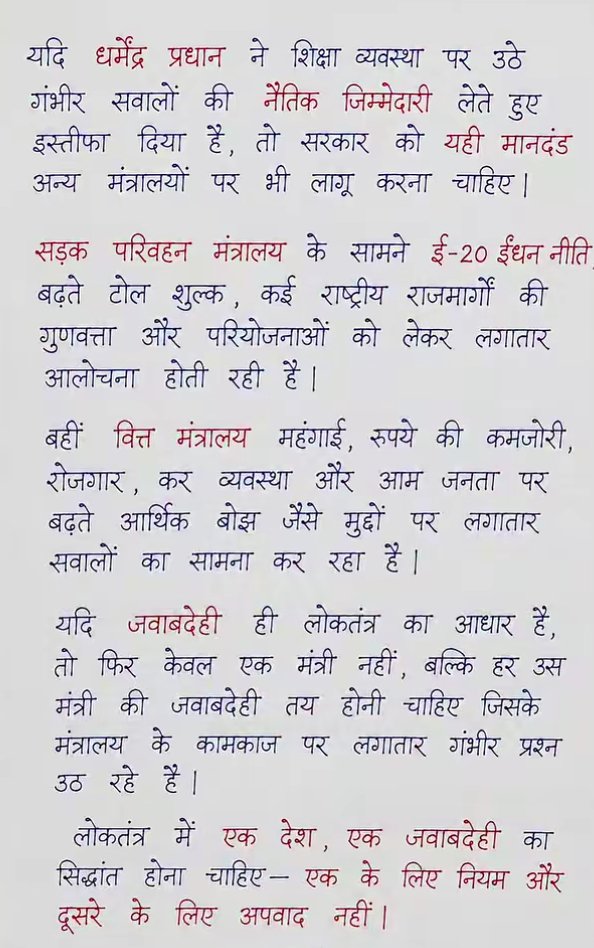 यदि धर्मेंद्र प्रधान ने शिक्षा व्यवस्था पर उठे
गंभीर सवालों की नैतिक जिम्मेदारी लेते हुए
इस्तीफा दिया है, तो सरकार को यही मानदंड
अन्य मंत्रालयों पर भी लागू करना चाहिए।
सड़क परिवहन मंत्रालय के सामने ई-20 ईंधन नीति,
बढ़ते टोल शुल्क, कई राष्ट्रीय राजमार्गों की
गुणवत्ता और परियोजनाओं को लेकर लगातार
आलोचना होती रही है।
बहीं वित्त मंत्रालय महंगाई, रुपये की कमजोरी,
रोजगार, कर व्यवस्था और आम जनता पर
बढ़ते आर्थिक बोझ जैसे मुद्दों पर लगातार
सवालों का सामना कर रहा है।
यदि जवाबदेही ही लोकतंत्र का आधार है,
तो फिर केवल एक मंत्री नहीं, बल्कि हर उस
मंत्री की जवाबदेही तय होनी चाहिए जिसके
मंत्रालय के कामकाज पर लगातार गंभीर प्रश्न
उठ रहे है।
लोकतंत्र में एक देश, एक जवाबदेही का
सिद्धांत होना चाहिए— एक के लिए नियम और
दूसरे के लिए अपवाद नहीं।